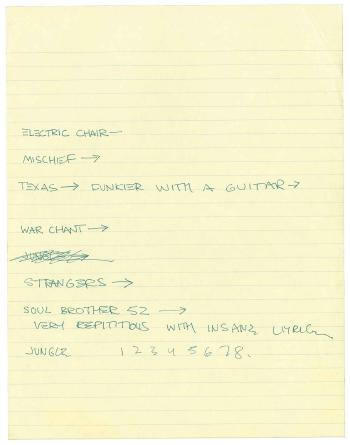 ELECTRIC CHAIR—
MISCHIEF →
TEXAS → DUNKIER WITH A GUITAR →
WAR CHANT →
STRANGERS →
SOUL BROTHER 52 →
VERY REPITITIOUS WITH INSANE LYRICS
JUNGLE 1 2 3 4 5 6 7 8.